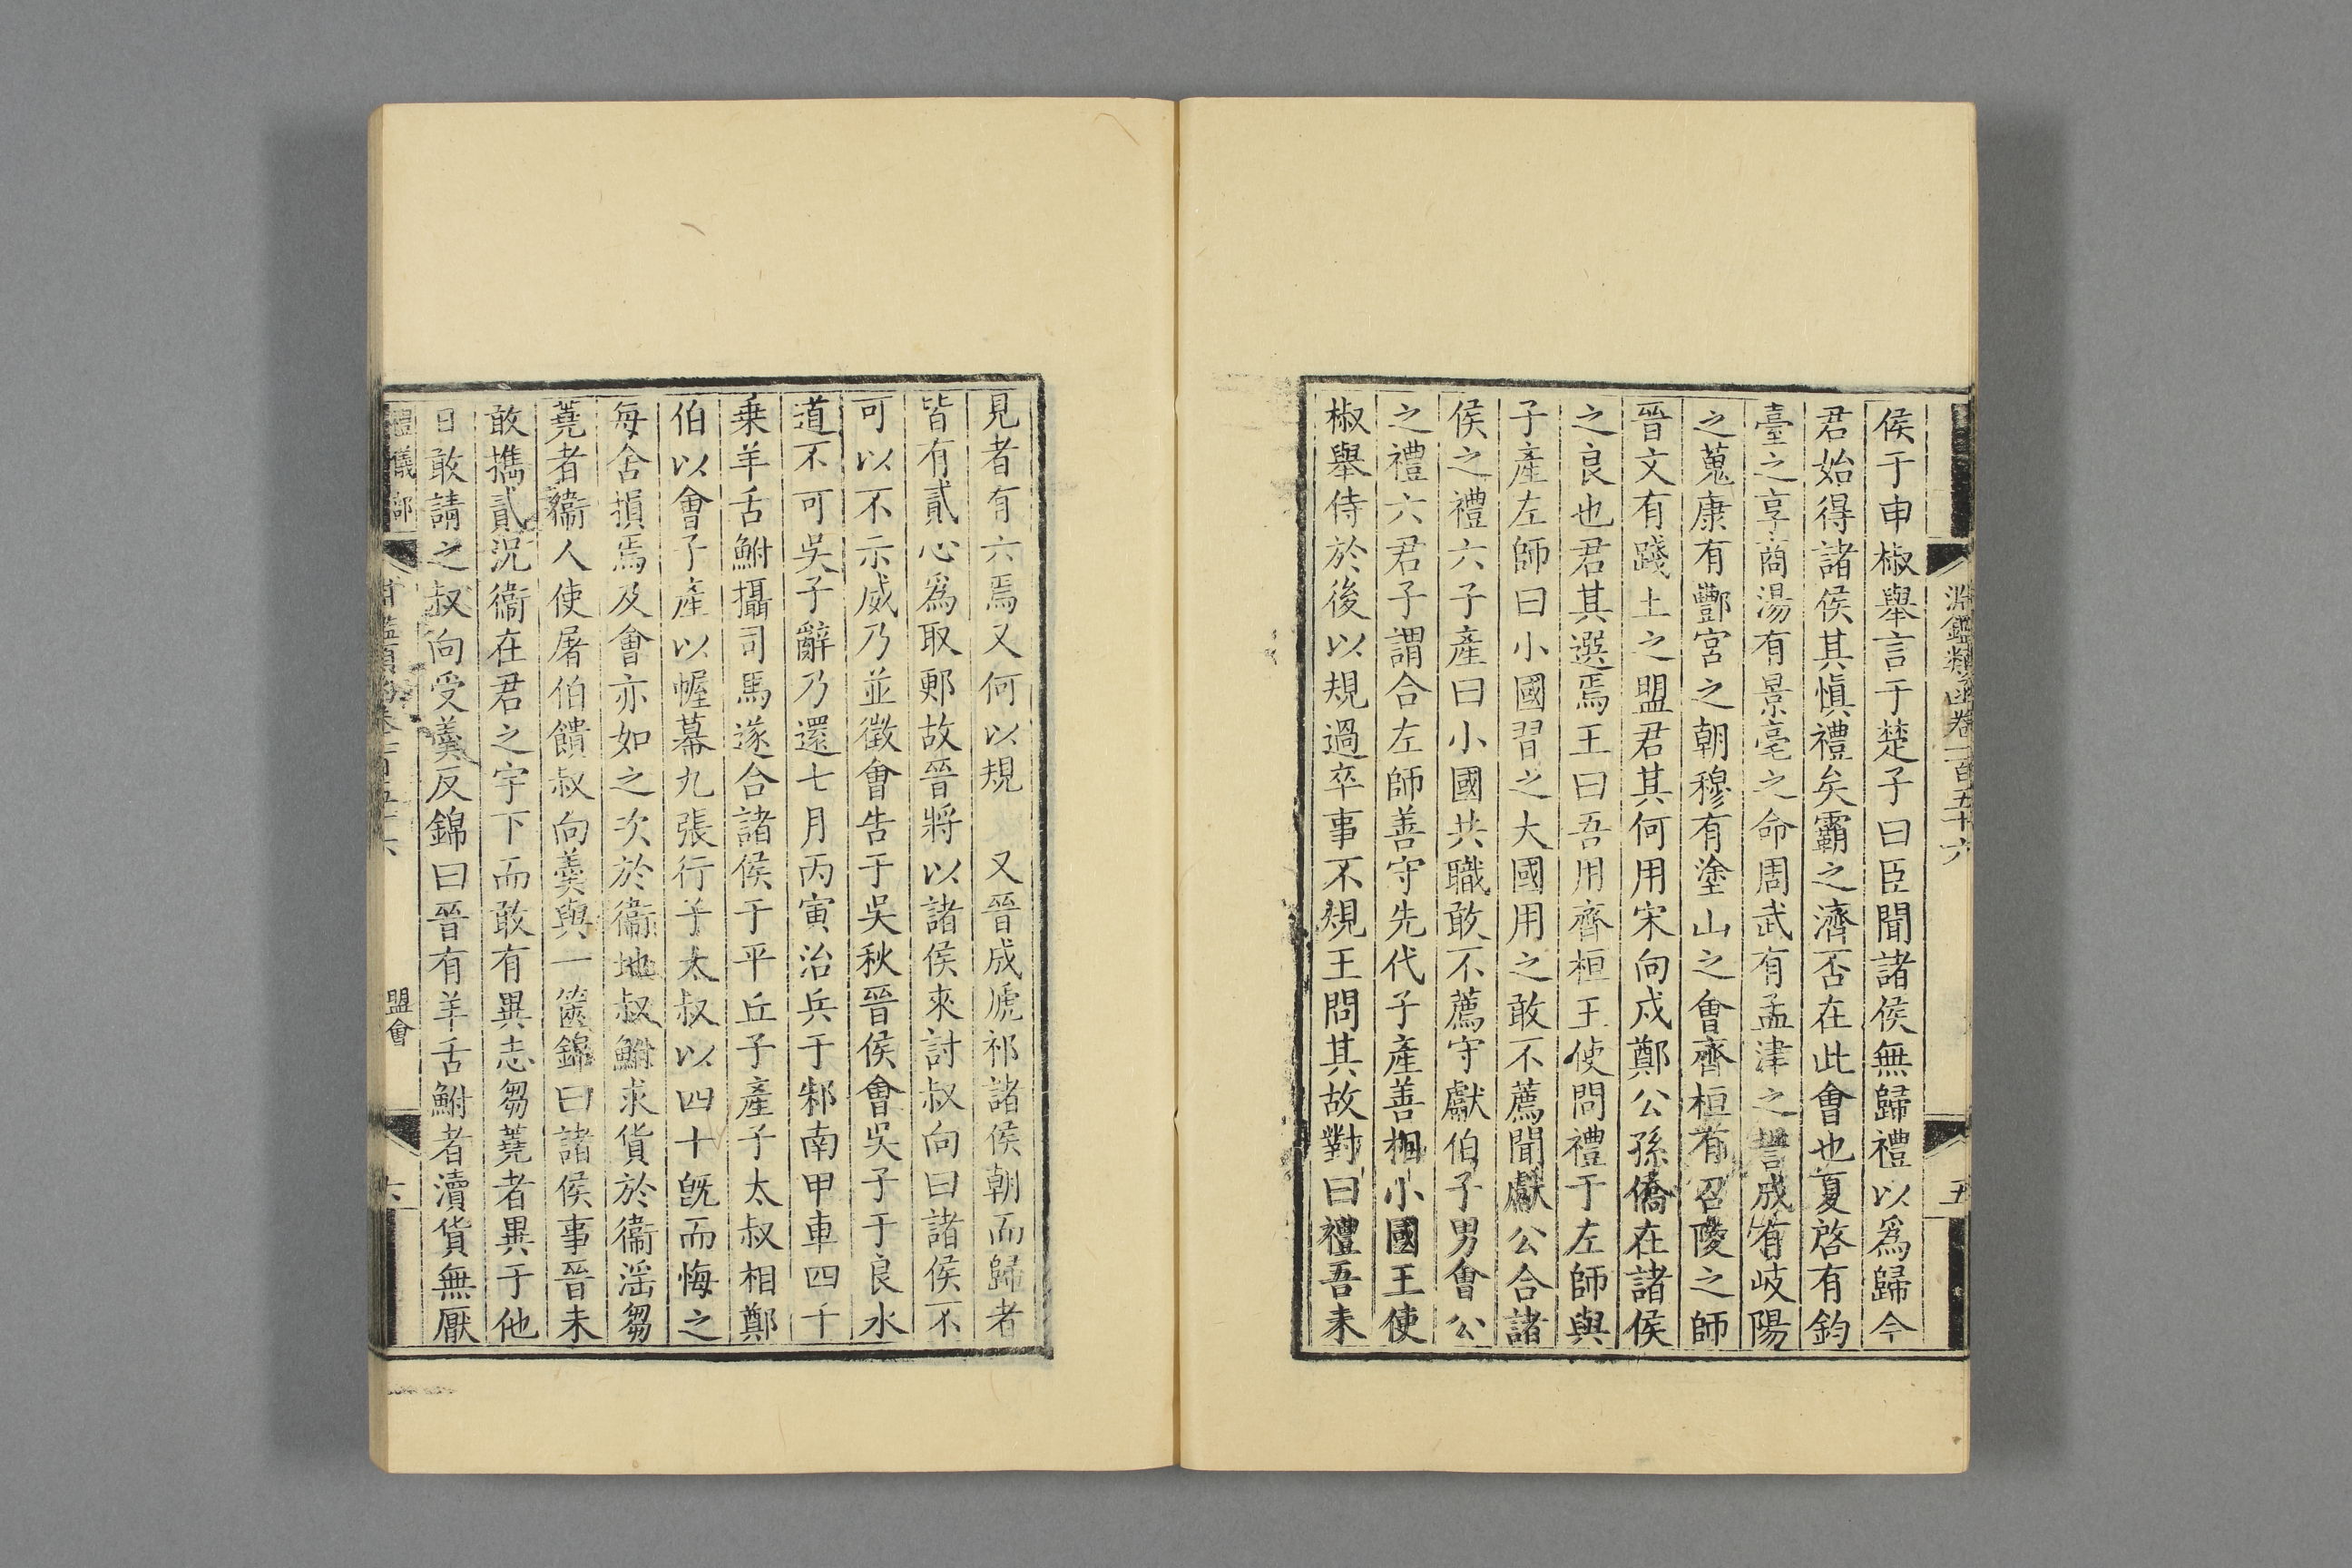 淵鑑類函卷一百五十六
五
侯于申椒舉言于楚子曰臣聞諸侯無歸禮以爲歸今
君始得諸侯其慎禮矣霸之濟否在此會也夏啓有鈞
臺之享商湯有景亳之命周武有孟津之誓成有岐陽
之蒐康有酆宮之朝穆有塗山之會齊桓有召陵之師
晉文有踐土之盟君其何用宋向戍鄭公孫僑在諸侯
之良也君其選焉王曰吾用齊桓王使問禮于左師與
子產左師曰小國習之大國用之敢不薦聞獻公合諸
侯之禮六子產曰小國共職敢不薦守獻伯子男會公
之禮六君子謂合左師善守先代子產善相小國王使
椒舉侍於後以規過卒事不規王問其故對曰禮吾未
見者有六焉又何以規 又晉成虒祁諸侯朝而歸者
皆有貳心爲取郠故晉將以諸侯來討叔向曰諸侯不
可以不示威乃並徵會告于吳秋晉侯會吳子于良水
道不可吳子辭乃還七月丙寅治兵于邾南甲車四千
乗羊舌鮒攝司馬遂合諸侯于平丘子產子太叔相鄭
伯以會子產以幄幕九張行子太叔以四十旣而悔之
每舍損焉及會亦如之次於衞地叔鮒求貨於衞淫芻
蕘者衞人使屠伯饋叔向羮與一篋錦曰諸侯事晉未
敢攜貳況衞在君之宇下而敢有異志芻蕘者異于他
日敢請之叔向受羮反錦曰晉有羊舌鮒者瀆貨無厭
禮儀部
卷一百五十六
盟會
六